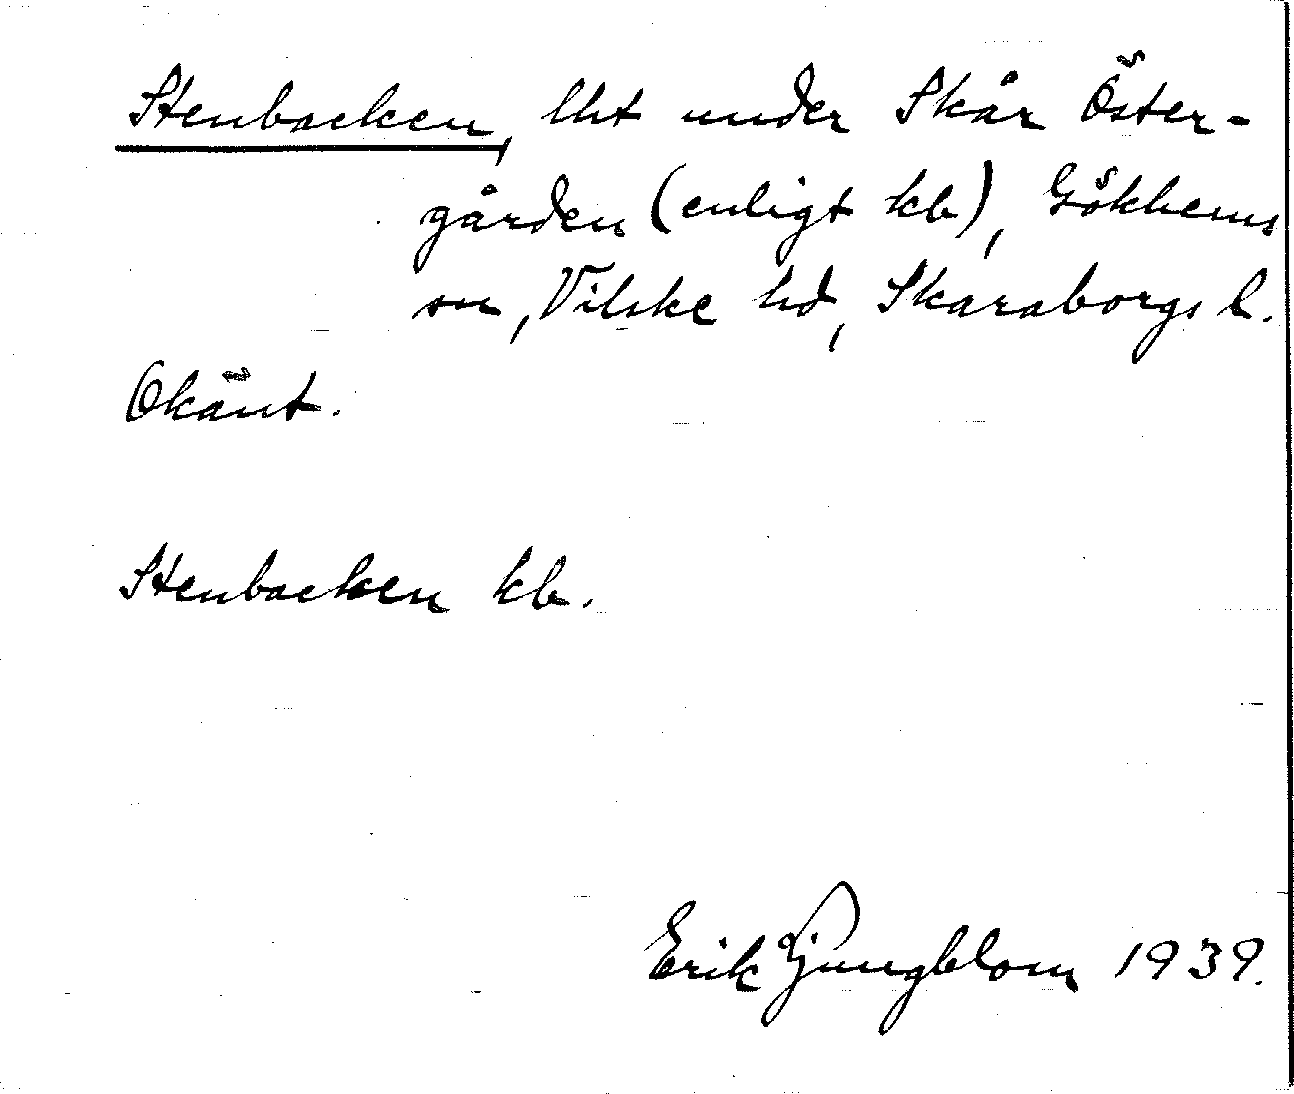 Stenbacken, lht under Skår Öster-
gården (enligt kb), Gökhems
sn, Vilske hd, Skaraborgs l.
Okänt.
Stenbacken kb.
Erik Ljungblom 1939.